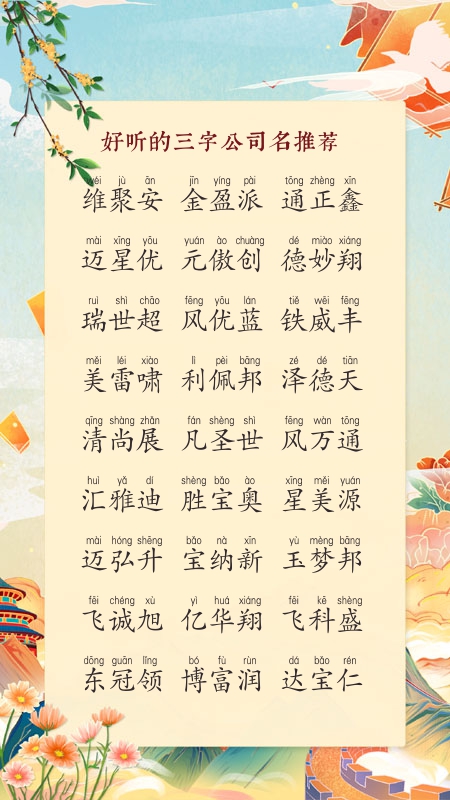 好听的三字公司名推荐
wéi jù ān jīn yíng pài tōng zhèng xīn
维聚安 金盈派 通正鑫
mài xīng yōu yuán ào chuàng dé miào xiáng
迈星优 元傲创 德妙翔
ruì shì chāo fēng yōu lán tiě wēi fēng
瑞世超 风优蓝 铁威丰
měi léi xiào lì pèi bāng zé dé tiān
美雷啸 利佩邦 泽德天
qīng shàng zhǎn fán shèng shì fēng wàn tōng
清尚展 凡圣世 风万通
huì yǎ dí shèng bǎo ào xīng měi yuán
汇雅迪 胜宝奥 星美源
mài hóng shēng bǎo nà xīn yù mèng bāng
迈弘升 宝纳新 玉梦邦
fēi chéng xù yì huá xiáng fēi kē shèng
飞诚旭 亿华翔 飞科盛
dōng guān lǐng bó fù rùn dá bǎo rén
东冠领 博富润 达宝仁